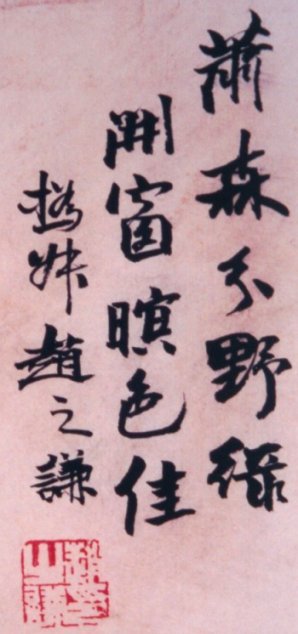 蕭森分野綠
開窗暝色佳
撝叔趙之謙
趙之謙